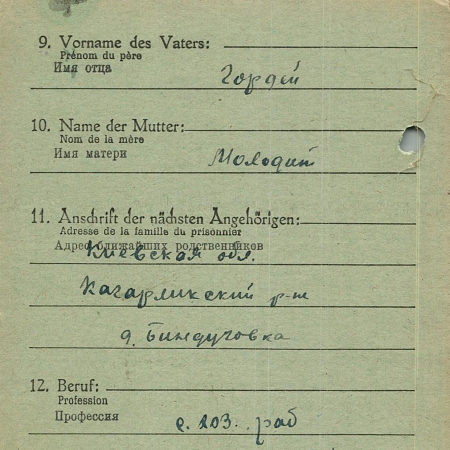 9. Vorname des Vaters:
Prénom du père
Имя отца
Гордей
10. Name der Mutter:
Nom de la mère
Имя матери
Молодит
11. Anschrift der nächsten Angehörigen:
Adresse de la famille du prisonnier
Адрес ближайших родственников
Киевская обл.
Кагарликский р-н
д. Биндуговка
12. Beruf:
Profession
Профессия
с. хоз. раб